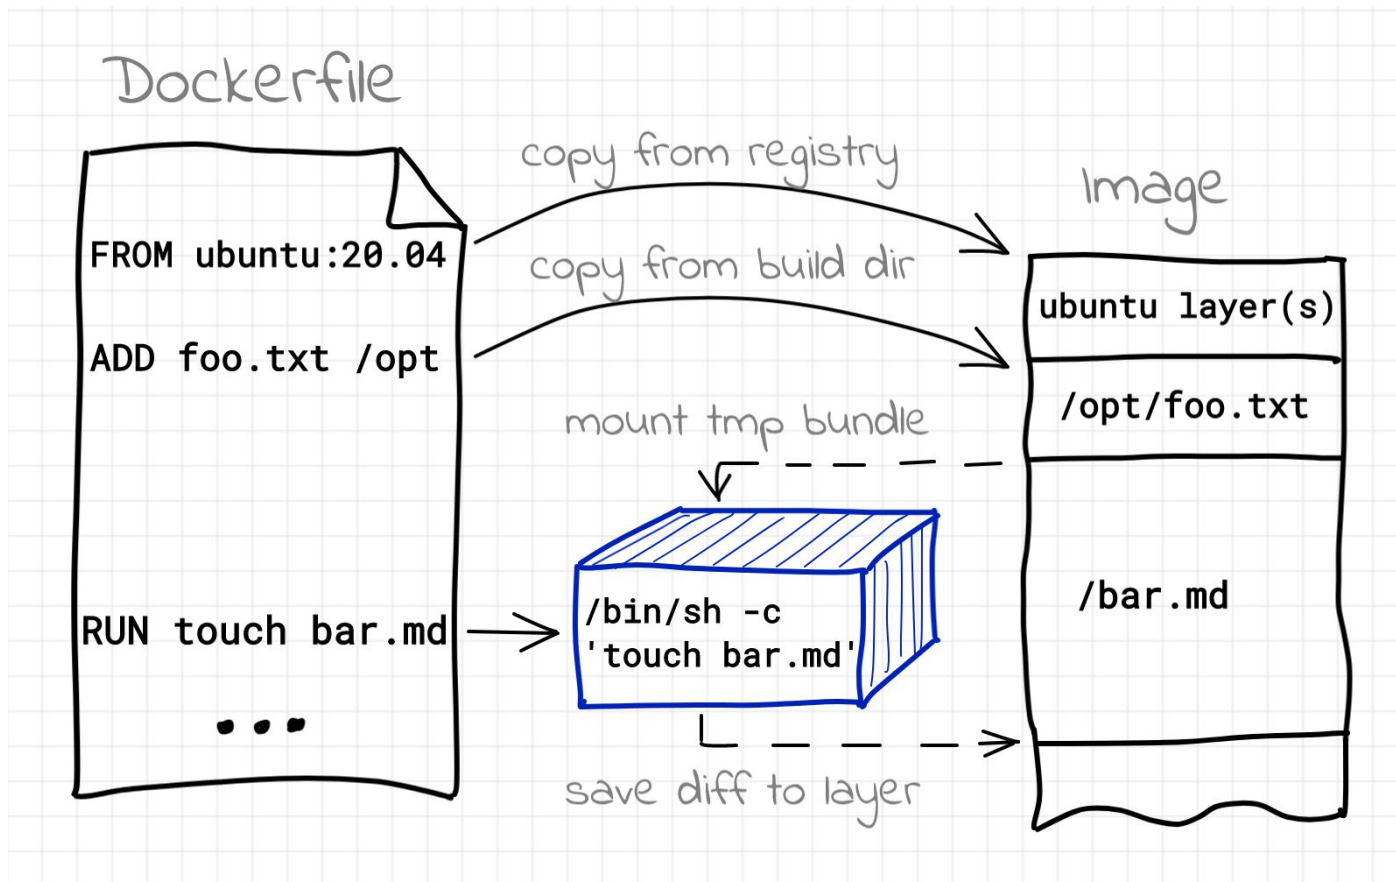 Dockerfile
FROM ubuntu:20.04
ADD foo.txt /opt
RUN touch bar.md
...
copy from registry
copy from build dir
mount tmp bundle
/bin/sh -c
'touch bar.md'
save diff to layer
Image
ubuntu layer(s)
/opt/foo.txt
/bar.md